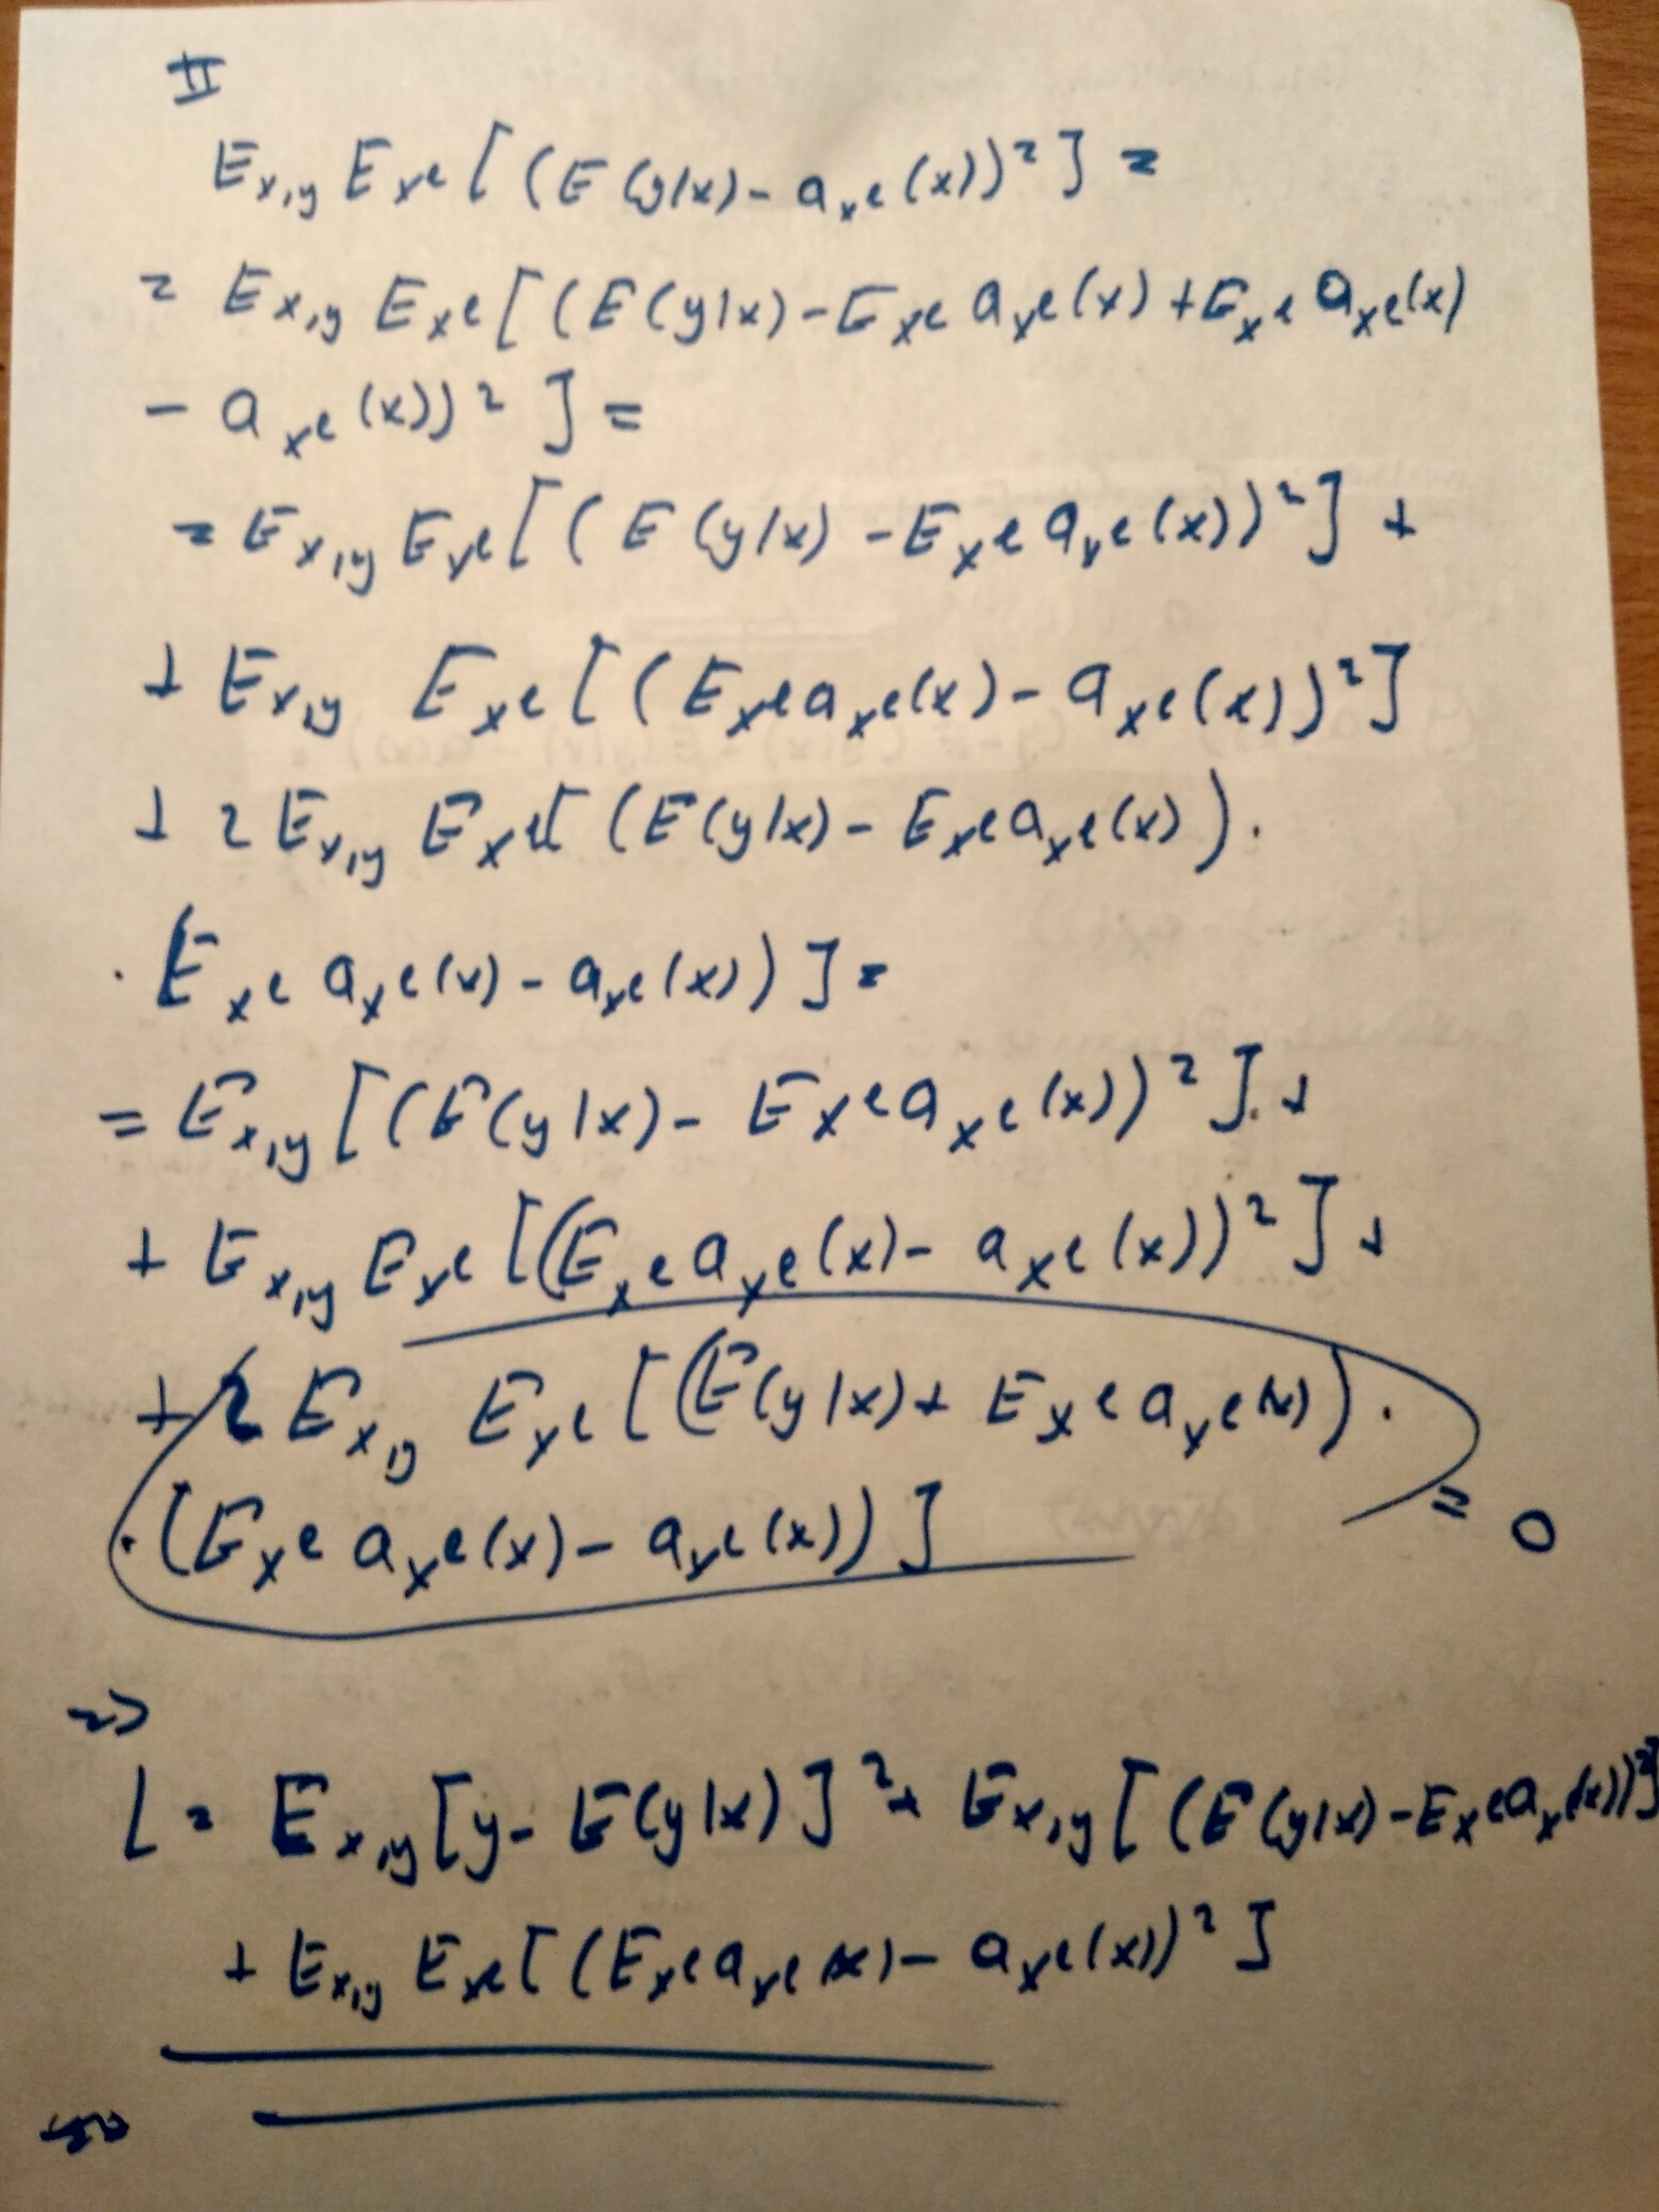 II
E_{x,y} E_{x^ℓ} [ (E(y|x) - a_{x^ℓ}(x))² ] =
= E_{x,y} E_{x^ℓ} [ (E(y|x) - E_{x^ℓ} a_{x^ℓ}(x) + E_{x^ℓ} a_{x^ℓ}(x)
- a_{x^ℓ}(x))² ] =
= E_{x,y} E_{x^ℓ} [ (E(y|x) - E_{x^ℓ} a_{x^ℓ}(x))² ] +
+ E_{x,y} E_{x^ℓ} [ (E_{x^ℓ} a_{x^ℓ}(x) - a_{x^ℓ}(x))² ]
+ 2 E_{x,y} E_{x^ℓ} [ (E(y|x) - E_{x^ℓ} a_{x^ℓ}(x)) ·
· (E_{x^ℓ} a_{x^ℓ}(x) - a_{x^ℓ}(x)) ] =
= E_{x,y} [ (E(y|x) - E_{x^ℓ} a_{x^ℓ}(x))² ] +
+ E_{x,y} E_{x^ℓ} [ (E_{x^ℓ} a_{x^ℓ}(x) - a_{x^ℓ}(x))² ] +
+ 2 E_{x,y} E_{x^ℓ} [ (E(y|x) + E_{x^ℓ} a_{x^ℓ}(x)) ·
· (E_{x^ℓ} a_{x^ℓ}(x) - a_{x^ℓ}(x)) ] = 0
=>
L = E_{x,y} [y - E(y|x)]² + E_{x,y} [ (E(y|x) - E_{x^ℓ} a_{x^ℓ}(x))² ]
+ E_{x,y} E_{x^ℓ} [ (E_{x^ℓ} a_{x^ℓ}(x) - a_{x^ℓ}(x))² ]